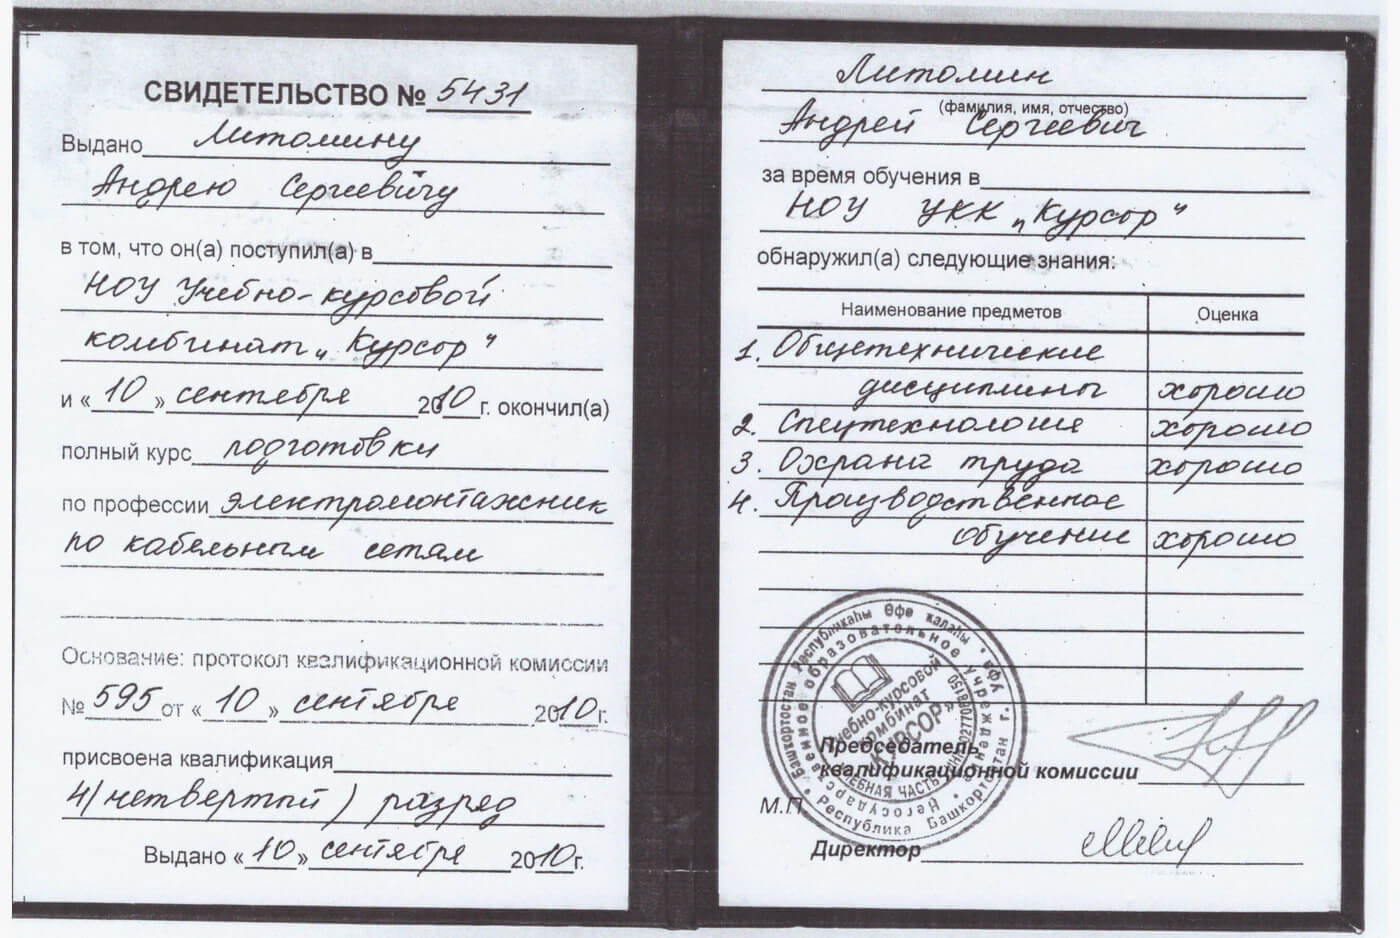 СВИДЕТЕЛЬСТВО № 5431
Выдано Литомину
Андрею Сергеевичу
в том, что он(а) поступил(а) в
НОУ Учебно-курсовой
комбинат „Курсор"
и «10» сентября 2010 г. окончил(а)
полный курс подготовки
по профессии электромонтажник
по кабельным сетям
Основание: протокол квалификационной комиссии
№ 595 от «10» сентября 2010 г.
присвоена квалификация
4 (четвертый) разряд
Выдано «10» сентября 2010 г.
Литомин
(фамилия, имя, отчество)
Андрей Сергеевич
за время обучения в
НОУ УКК „Курсор"
обнаружил(а) следующие знания:
Наименование предметов Оценка
1. Общетехнические
дисциплины хорошо
2. Спецтехнология хорошо
3. Охрана труда хорошо
4. Производственное
обучение хорошо
Башкортостан Республикаһы Өфө ҡалаһы
Республика Башкортостан г. Уфа
Негосударственное образовательное учреждение
Учебно-курсовой
комбинат
«КУРСОР»
УЧЕБНАЯ ЧАСТЬ
Председатель
квалификационной комиссии
М.П.
Директор